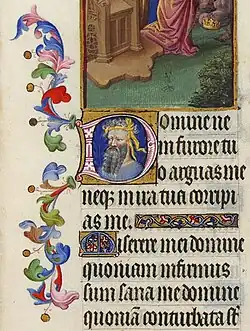 Domine ne
in furore tu
o arguas me
neq; in ira tua corripi
as me.
Miserere mei domine
quoniam infirmus
sum sana me domine
quoniã conturbata st